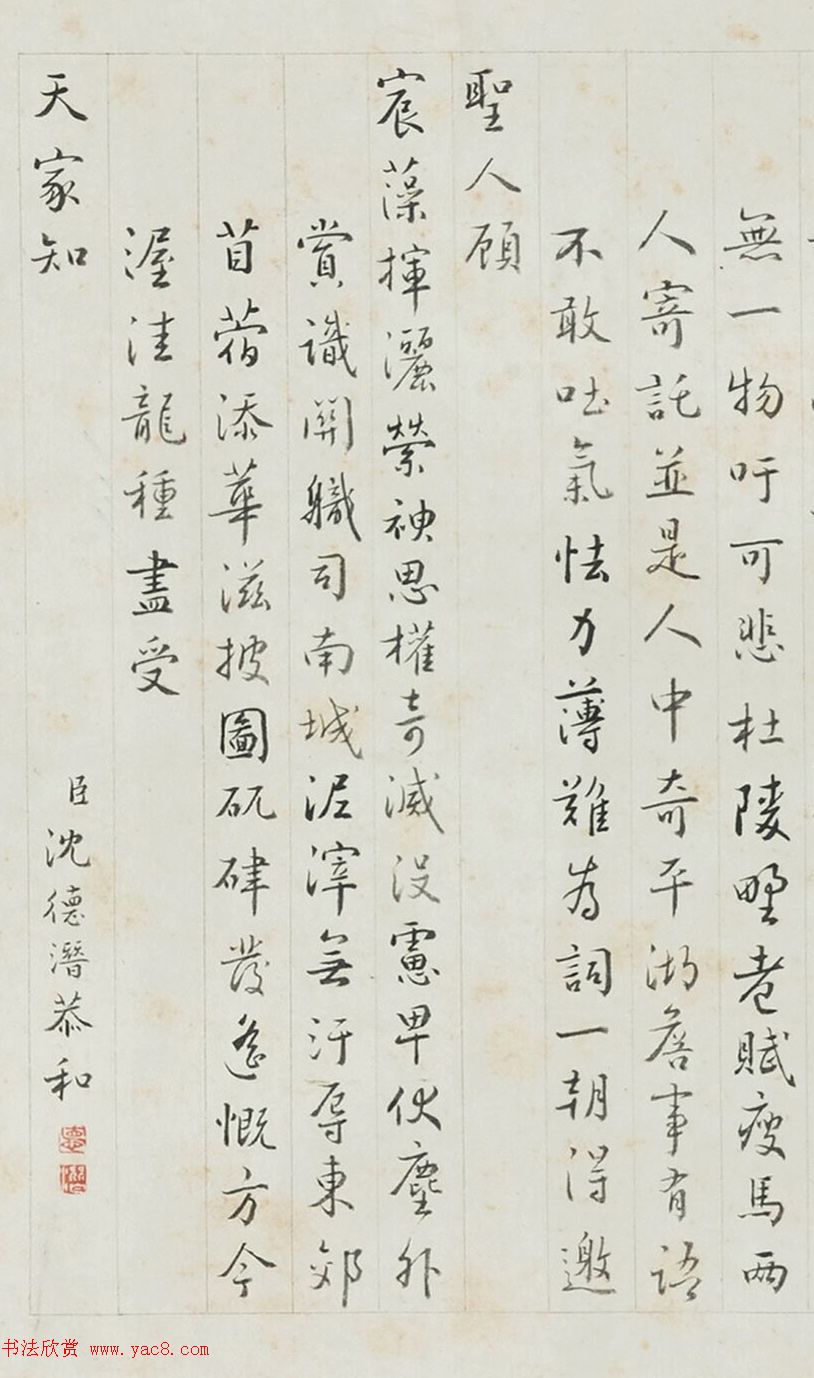 無一物吁可悲杜陵野老賦瘦馬兩
人寄託並是人中奇平湖詹事有語
不敢吐氣怯力薄難為詞一朝得邀
聖人顧
宸藻揮灑縈神思權奇滅沒慮早伏塵外
賞識開職司南城泥滓無汙辱東郊
苜蓿添華滋披圖矹硉發遙慨方今
渥洼龍種盡受
天家知
臣沈德潛恭和
德潛
书法欣赏 www.yac8.com